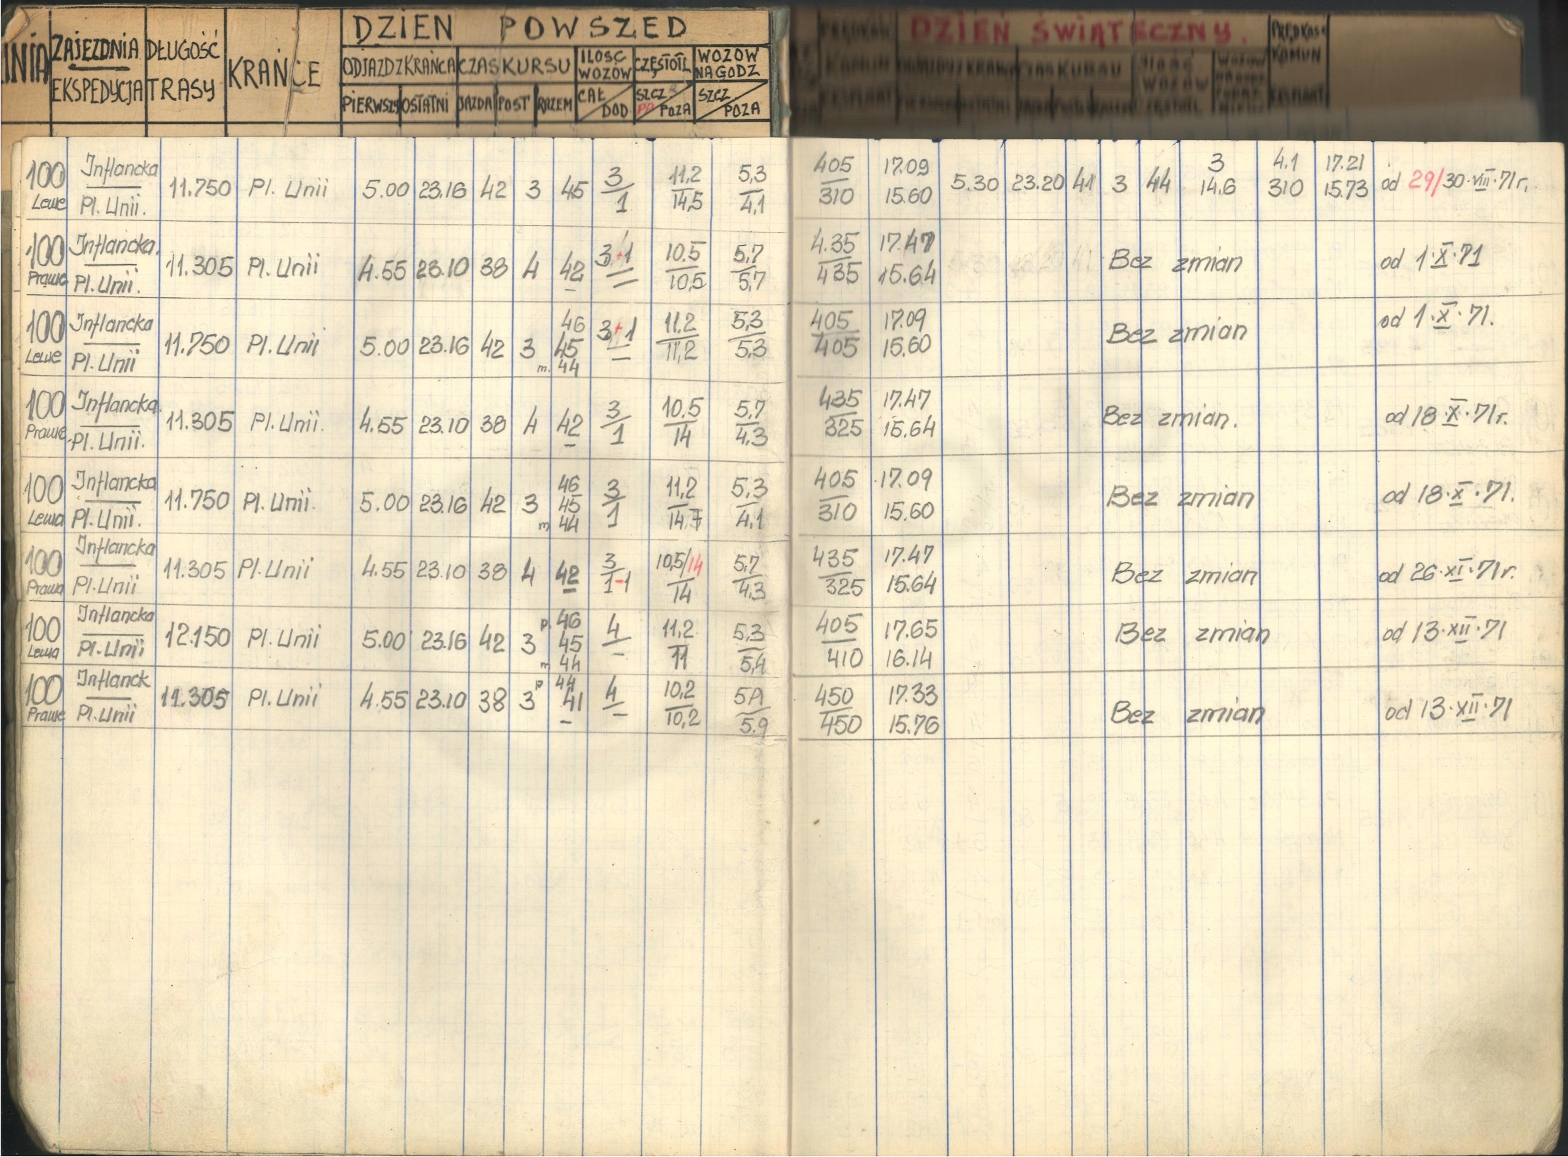 DZIEŃ POWSZED
DZIEŃ ŚWIĄTECZNY.
ZAJEZDNIA DŁUGOŚĆ KRAŃCE ODJAZD Z KRAŃCA CZAS KURSU ILOŚC WOZÓW CZĘSTOTL WOZÓW NA GODZ
EKSPEDYCJA TRASY PIERWSZY OSTATNI JAZDA POST RAZEM CAŁ DOD SZCZ POZA SZCZ POZA
100 Inflancka 11.750 Pl. Unii 5.00 23.16 42 3 45 3 11,2 5,3 405 17.09 5.30 23.20 41 3 44 3 4.1 17.21 od 29/30·VIII·71r.
Lewe Pl. Unii. 1 14,5 4,1 310 15.60 14.6 310 15.73
100 Inflancka. 11.305 Pl. Unii 4.55 23.10 38 4 42 3+1 10.5 5,7 4.35 17.47 Bez zmian od 1·X·71
Prawe Pl. Unii. — 10,5 5,7 435 15.64
100 Inflancka 11.750 Pl. Unii 5.00 23.16 42 3 46 3+1 11,2 5,3 405 17.09 Bez zmian od 1·X·71.
Lewe Pl. Unii 45 — 11,2 5,3 405 15.60
m. 44
100 Inflancka 11.305 Pl. Unii. 4.55 23.10 38 4 42 3 10,5 5,7 435 17.47 Bez zmian. od 18·X·71r.
Prawe Pl. Unii. 1 14 4,3 325 15.64
100 Inflancka 11.750 Pl. Unii. 5.00 23.16 42 3 46 3 11,2 5,3 405 17.09 Bez zmian od 18·X·71.
Lewa Pl. Unii. 45 1 14,7 4,1 310 15.60
m 44
100 Inflancka 11.305 Pl. Unii 4.55 23.10 38 4 42 3 10,5/14 5,7 435 17.47 Bez zmian od 26·XI·71r.
Prawa Pl. Unii 1-1 14 4,3 325 15.64
100 Inflancka 12.150 Pl. Unii 5.00 23.16 42 3 p. 46 4 11,2 5,3 405 17.65 Bez zmian od 13·XII·71
Lewa Pl. Unii 45 — 11 5,4 410 16.14
m 44
100 Inflanck 11.305 Pl. Unii 4.55 23.10 38 3 p 44 4 10,2 5,9 450 17.33 Bez zmian od 13·XII·71
Prawe Pl. Unii 41 — 10,2 5.9 450 15.76